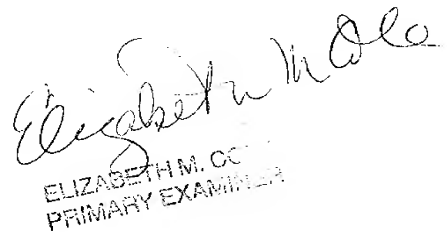 Elizabeth M Cole
ELIZABETH M. CO
PRIMARY EXAMINER